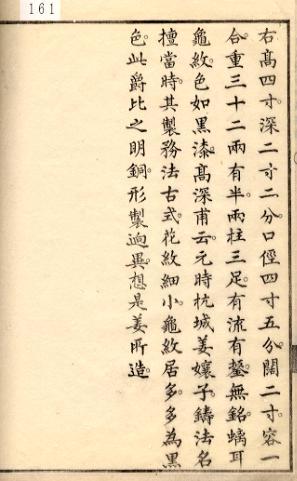 161
右高四寸深二寸二分口徑四寸五分闊二寸容一
合重三十二兩有半兩柱三足有流有鋬無銘螭耳
龜紋色如黑漆高深甫云元時杭城姜孃子鑄法名
擅當時其製務法古式花紋細小龜紋居多多為黑
色此爵比之明銅形製逈異想是姜所造